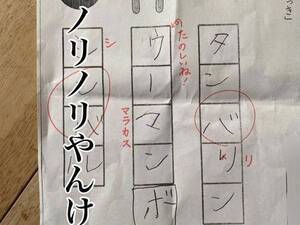 っき
タンバリン
リ
のたのしいね！
ウーマンボ
マラカス
シ
ノリノリやんけ